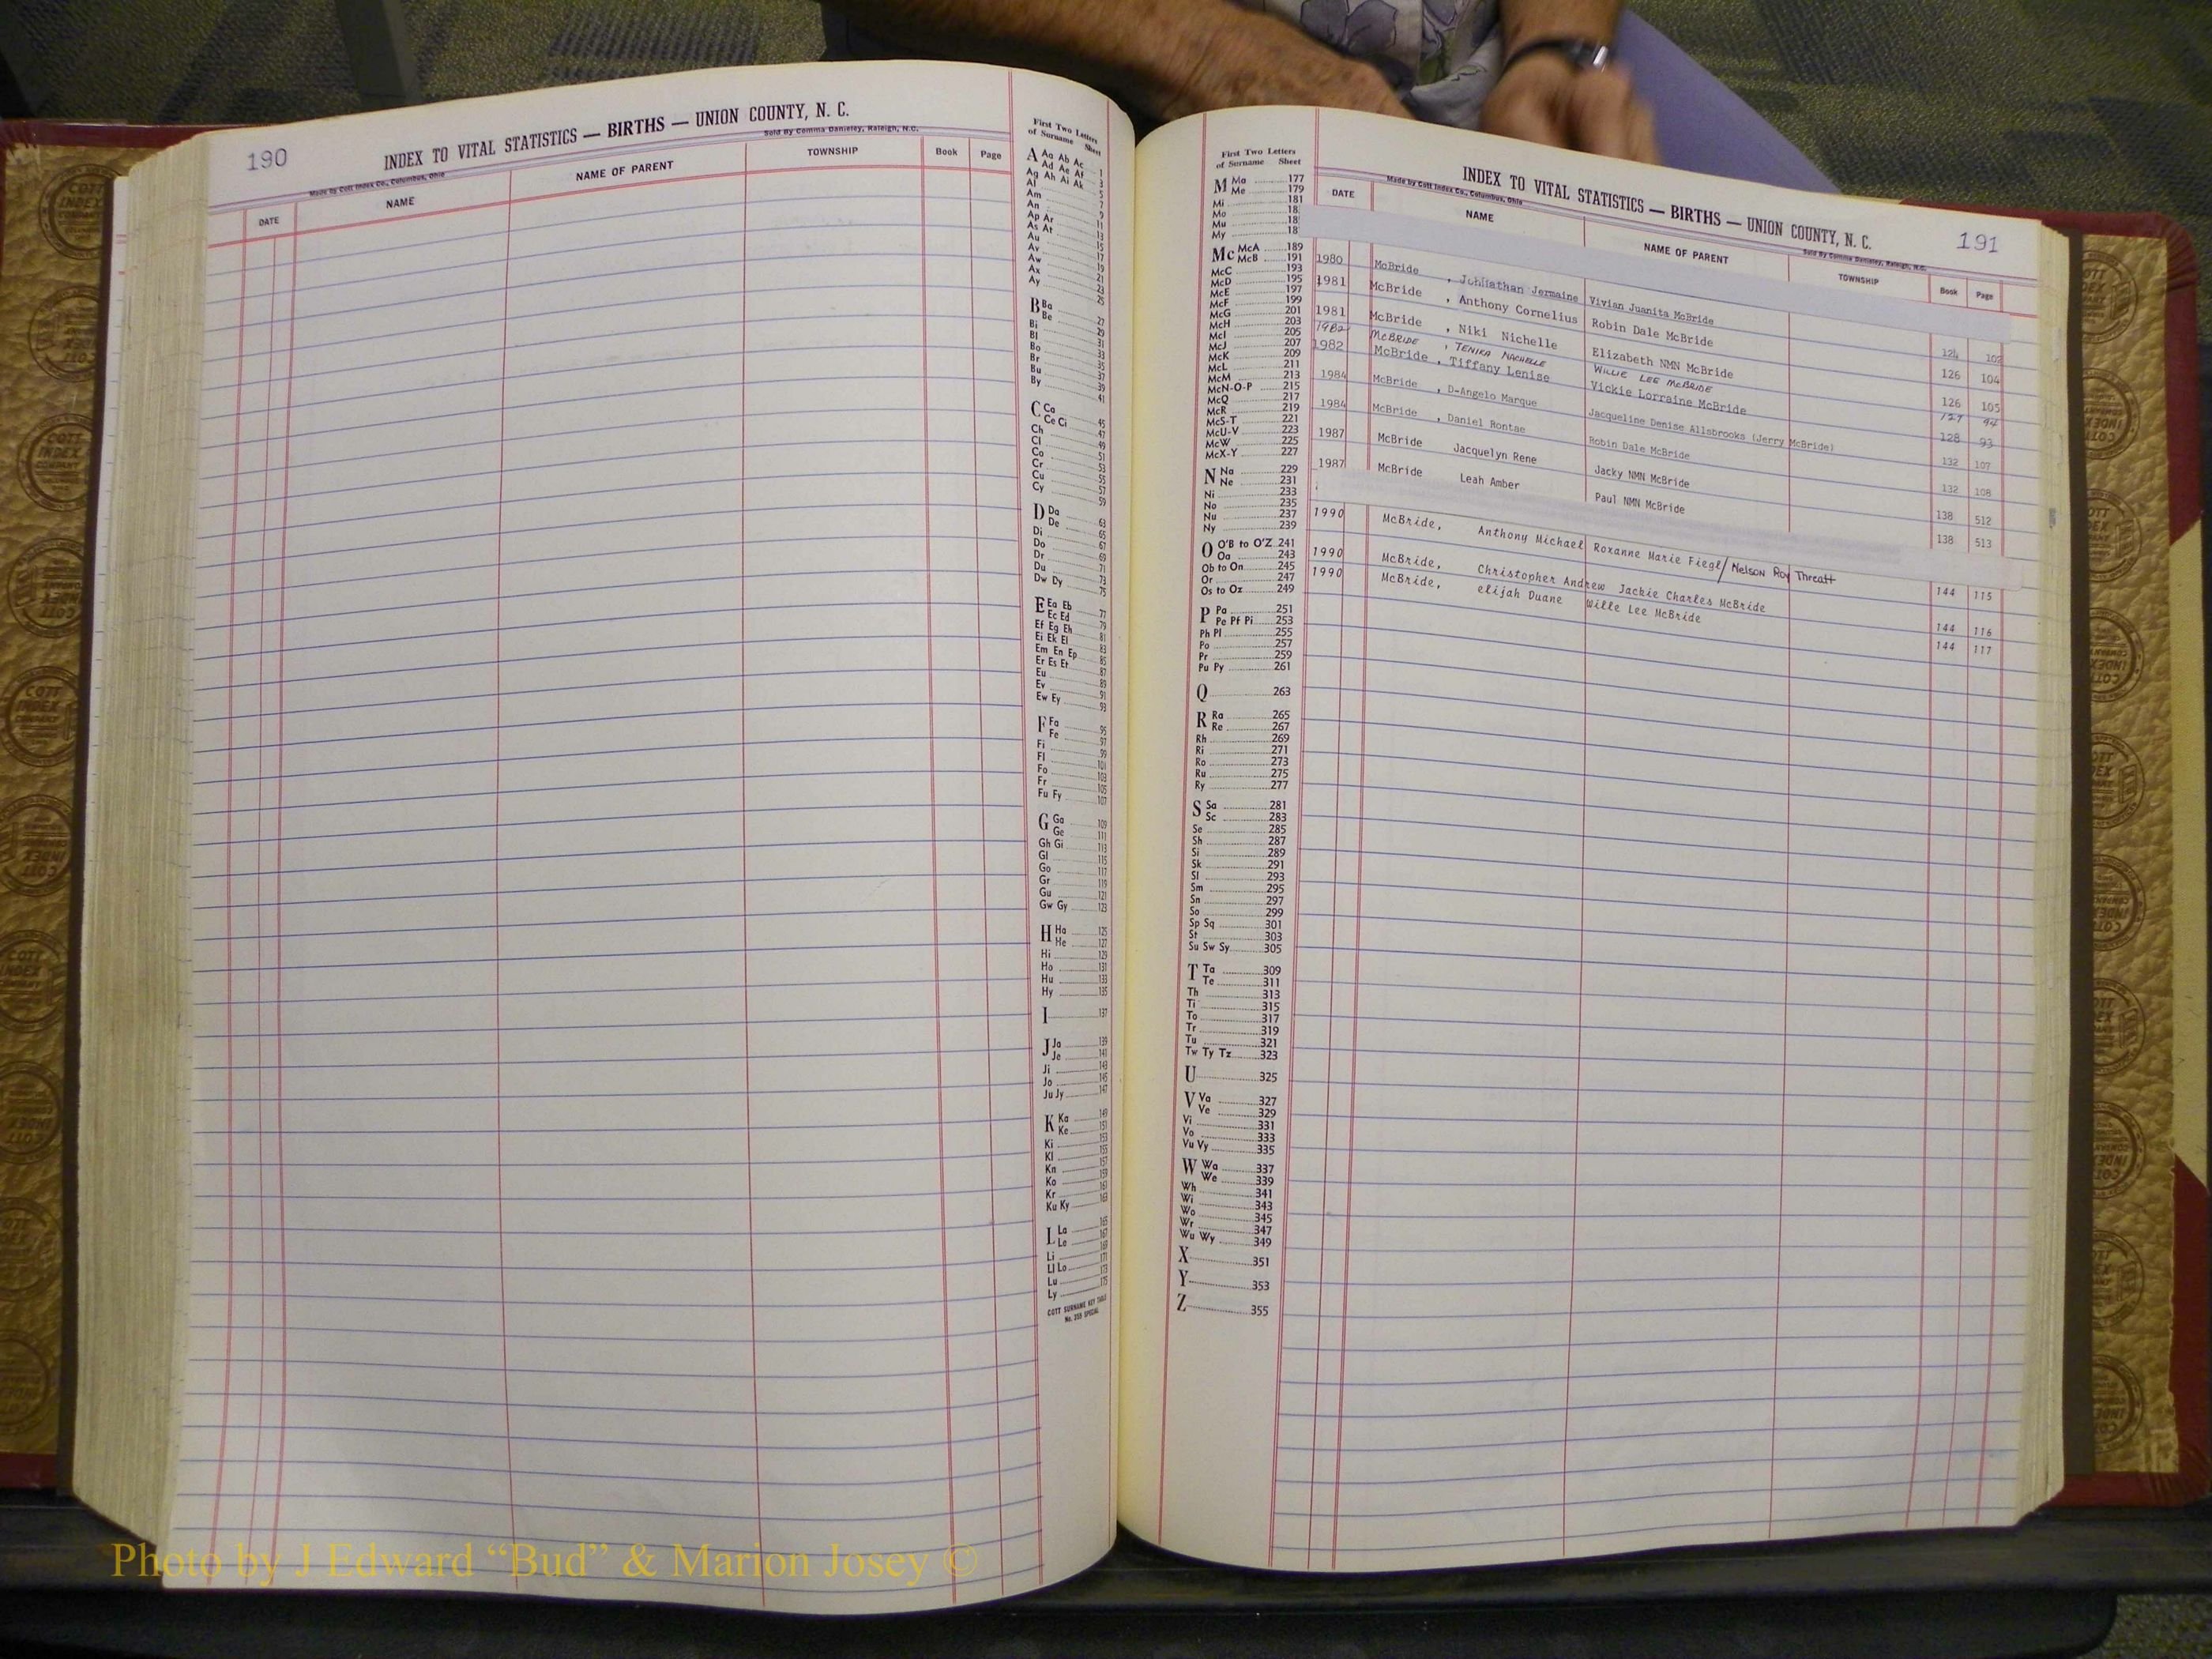 190
INDEX TO VITAL STATISTICS — BIRTHS — UNION COUNTY, N. C.
Made by Cott Index Co., Columbus, Ohio
Sold By Comma Danieley, Raleigh, N.C.
DATE NAME NAME OF PARENT TOWNSHIP Book Page
First Two Letters
of Surname Sheet
A Aa Ab Ac 1
Ad Ae Af 3
Ag Ah Ai Ak 5
Al 7
Am 9
An 11
Ap Ar 13
As At 15
Au 17
Av 19
Aw 21
Ax 23
Ay 25
B Ba 27
Be 29
Bi 31
Bl 33
Bo 35
Br 37
Bu 39
By 41
C Ca 45
Ce Ci 47
Ch 49
Cl 51
Co 53
Cr 55
Cu 57
Cy 59
D Da 63
De 65
Di 67
Do 69
Dr 71
Du 73
Dw Dy 75
E Ea Eb 77
Ec Ed 79
Ef Eg Eh 81
Ei Ek El 83
Em En Ep 85
Er Es Et 87
Eu 89
Ev 91
Ew Ey 93
F Fa 95
Fe 97
Fi 99
Fl 101
Fo 103
Fr 105
Fu Fy 107
G Ga 109
Ge 111
Gh Gi 113
Gl 115
Go 117
Gr 119
Gu 121
Gw Gy 123
H Ha 125
He 127
Hi 129
Ho 131
Hu 133
Hy 135
I 137
J Ja 139
Je 141
Ji 143
Jo 145
Ju Jy 147
K Ka 149
Ke 151
Ki 153
Kl 155
Kn 157
Ko 159
Kr 161
Ku Ky 163
L La 165
Le 167
Li 169
Ll Lo 171
Lu 173
Ly 175
COTT SURNAME KEY TABLE
No. 359 SPECIAL
First Two Letters
of Surname Sheet
M Ma 177
Me 179
Mi 181
Mo 18
Mu 18
My 18
Mc McA 189
McB 191
McC 193
McD 195
McE 197
McF 199
McG 201
McH 203
McI 205
McJ 207
McK 209
McL 211
McM 213
McN-O-P 215
McQ 217
McR 219
McS-T 221
McU-V 223
McW 225
McX-Y 227
N Na 229
Ne 231
Ni 233
No 235
Nu 237
Ny 239
O O'B to O'Z 241
Oa 243
Ob to On 245
Or 247
Os to Oz 249
P Pa 251
Pe Pf Pi 253
Ph Pl 255
Po 257
Pr 259
Pu Py 261
Q 263
R Ra 265
Re 267
Rh 269
Ri 271
Ro 273
Ru 275
Ry 277
S Sa 281
Sc 283
Se 285
Sh 287
Si 289
Sk 291
Sl 293
Sm 295
Sn 297
So 299
Sp Sq 301
St 303
Su Sw Sy 305
T Ta 309
Te 311
Th 313
Ti 315
To 317
Tr 319
Tu 321
Tw Ty Tz 323
U 325
V Va 327
Ve 329
Vi 331
Vo 333
Vu Vy 335
W Wa 337
We 339
Wh 341
Wi 343
Wo 345
Wr 347
Wu Wy 349
X 351
Y 353
Z 355
INDEX TO VITAL STATISTICS — BIRTHS — UNION COUNTY, N. C.
191
Made by Cott Index Co., Columbus, Ohio
Sold By Comma Danieley, Raleigh, N.C.
DATE NAME NAME OF PARENT TOWNSHIP Book Page
1980 McBride , Johnathan Jermaine Vivian Juanita McBride 124 102
1981 McBride , Anthony Cornelius Robin Dale McBride 126 104
1981 McBride , Niki Nichelle Elizabeth NMN McBride 126 105
1982 McBRIDE , TENIKA NACHELLE WILLIE LEE McBRIDE 127 94
1982 McBride , Tiffany Lenise Vickie Lorraine McBride 128 93
1984 McBride , D-Angelo Marque Jacqueline Denise Allsbrooks (Jerry McBride) 132 107
1984 McBride , Daniel Rontae Robin Dale McBride 132 108
1987 McBride Jacquelyn Rene Jacky NMN McBride 138 512
1987 McBride Leah Amber Paul NMN McBride 138 513
1990 McBride, Anthony Michael Roxanne Marie Fiegl/ Nelson Roy Threatt 144 115
1990 McBride, Christopher Andrew Jackie Charles McBride 144 116
1990 McBride, elijah Duane Wille Lee McBride 144 117
Photo by J Edward “Bud” & Marion Josey ©